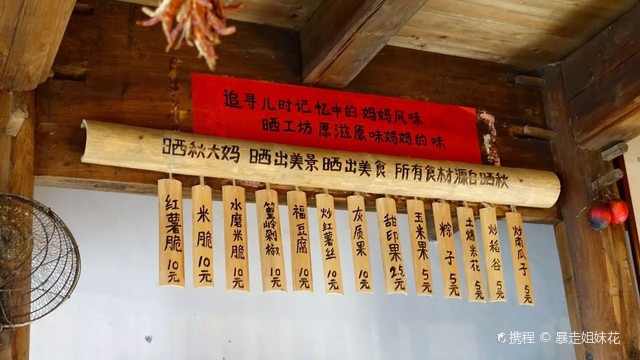 追寻儿时记忆中的妈妈风味
晒工坊原滋原味妈妈的味
晒秋大妈 晒出美景晒出美食 所有食材源自晒秋
红薯脆 10元
米脆 10元
水磨米脆 10元
篁岭剁椒 10元
福豆腐 10元
炒红薯丝 10元
灰质果 10元
甜印果 25元
玉米果 5元
粽子 5元
土爆米花 5元
炒稻谷 5元
炒南瓜子 5元
携程 © 暴走姐妹花